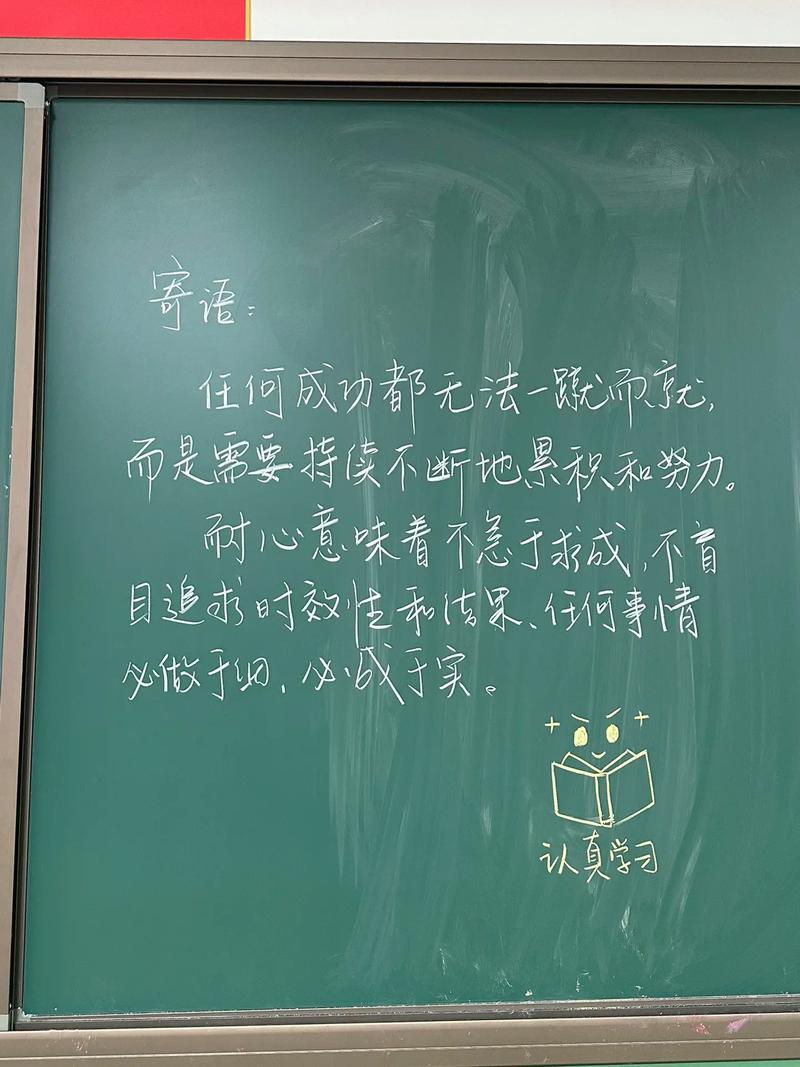 寄语:
任何成功都无法一蹴而就,
而是需要持续不断地累积和努力。
耐心意味着不急于求成,不盲
目追求时效性和结果、任何事情
必做于细,必成于实。
认真学习